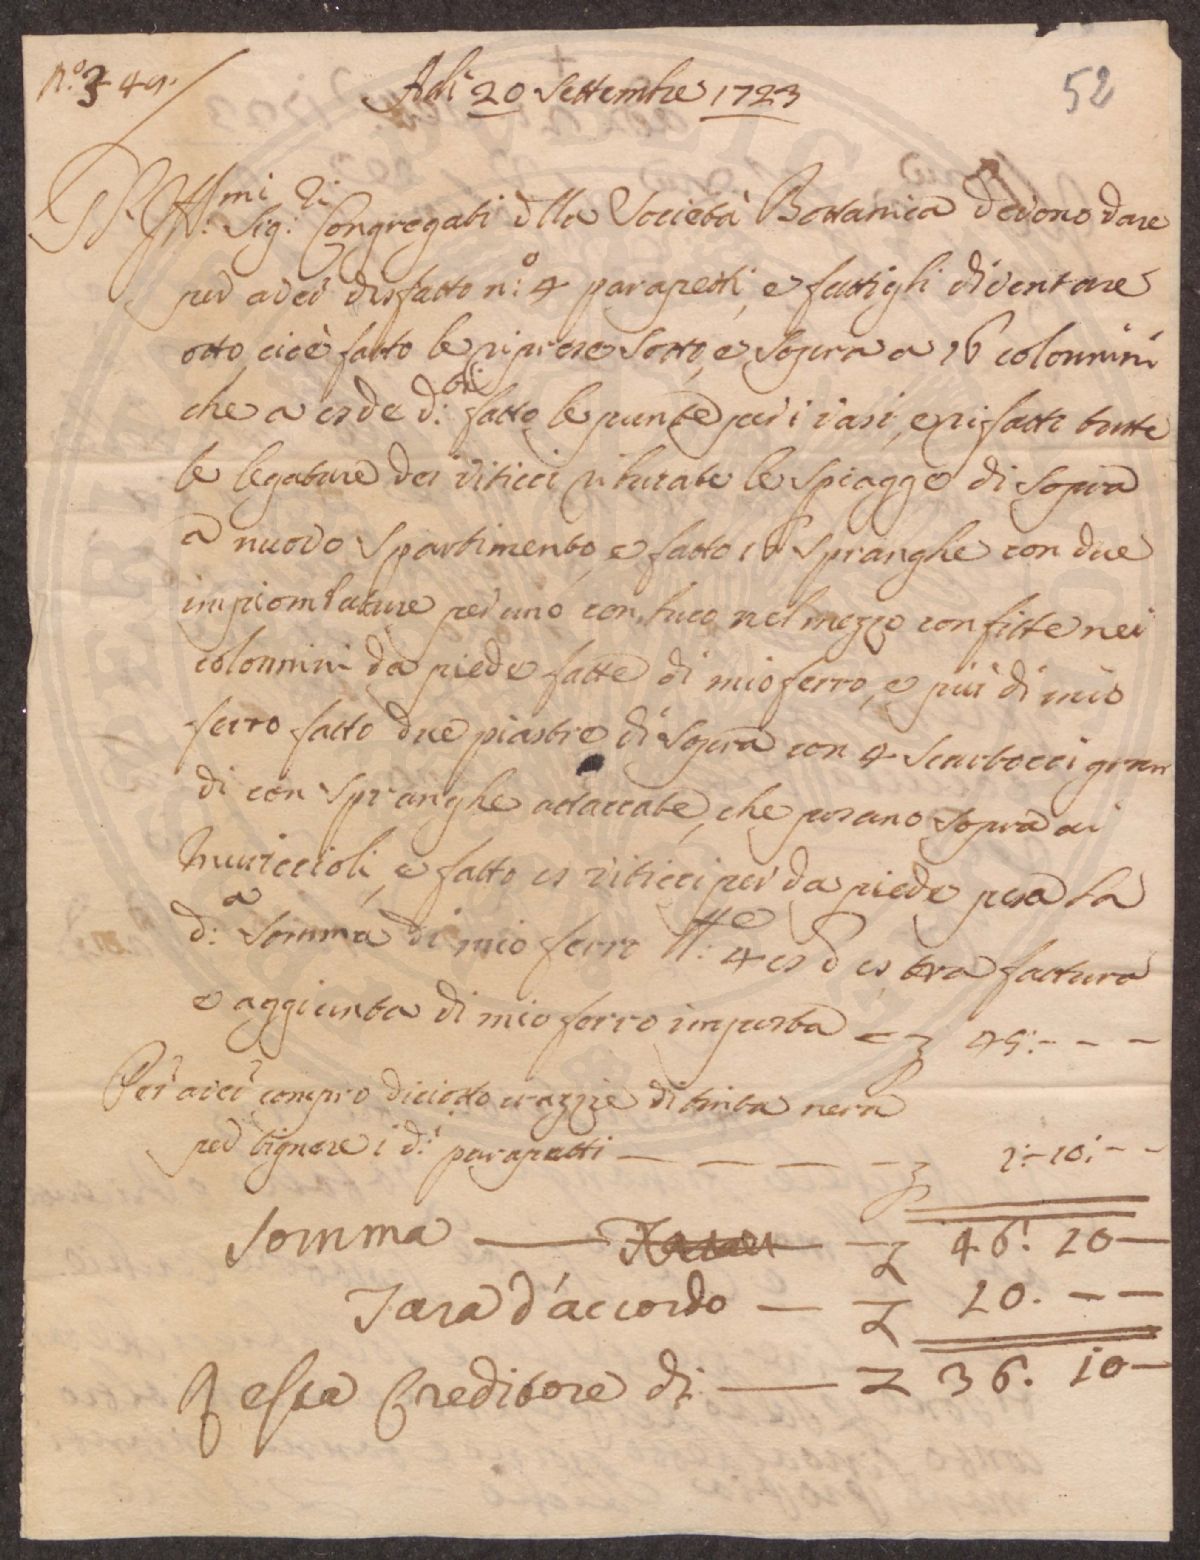 N.º 349.
Adì 20 Settembre 1723
52
Gl' Ill.mi Sig.ri Congregati d lla Società Bottanica devono dare
per aver disfatto n.º 4 parapetti, e fattigli diventare
otto, cioè fatto le riprese sotto, e sopra a 16 colonnini
che a es de d.i fatto le punte per i vasi, e rifatto tutte
le legature dei viticci riturate le spiagge di sopra
a nuovo spartimento, e fatto 16 spranghe con due
impiombature per uno con, nel mezzo confitte nei
colonnini da piede fatte di mio ferro, e più di mio
ferro fatto due piastre di sopra con 4 scartocci gran
di con spranghe attaccate, che posano sopra ai
muriccioli, e fatto viticci per da piede pesa la
d.a somma di mio ferro fattura
e aggiunta di mio ferro importa £ 45:- - -
Per aver compro diciotto crazzie di tinta nera
per tignere i d.i parapetti — — — — £ 1:-10:- -
Somma — £ 46. 10 —
Tara d'accordo — £ 10. - - -
Resta Creditore di — £ 36. 10 —